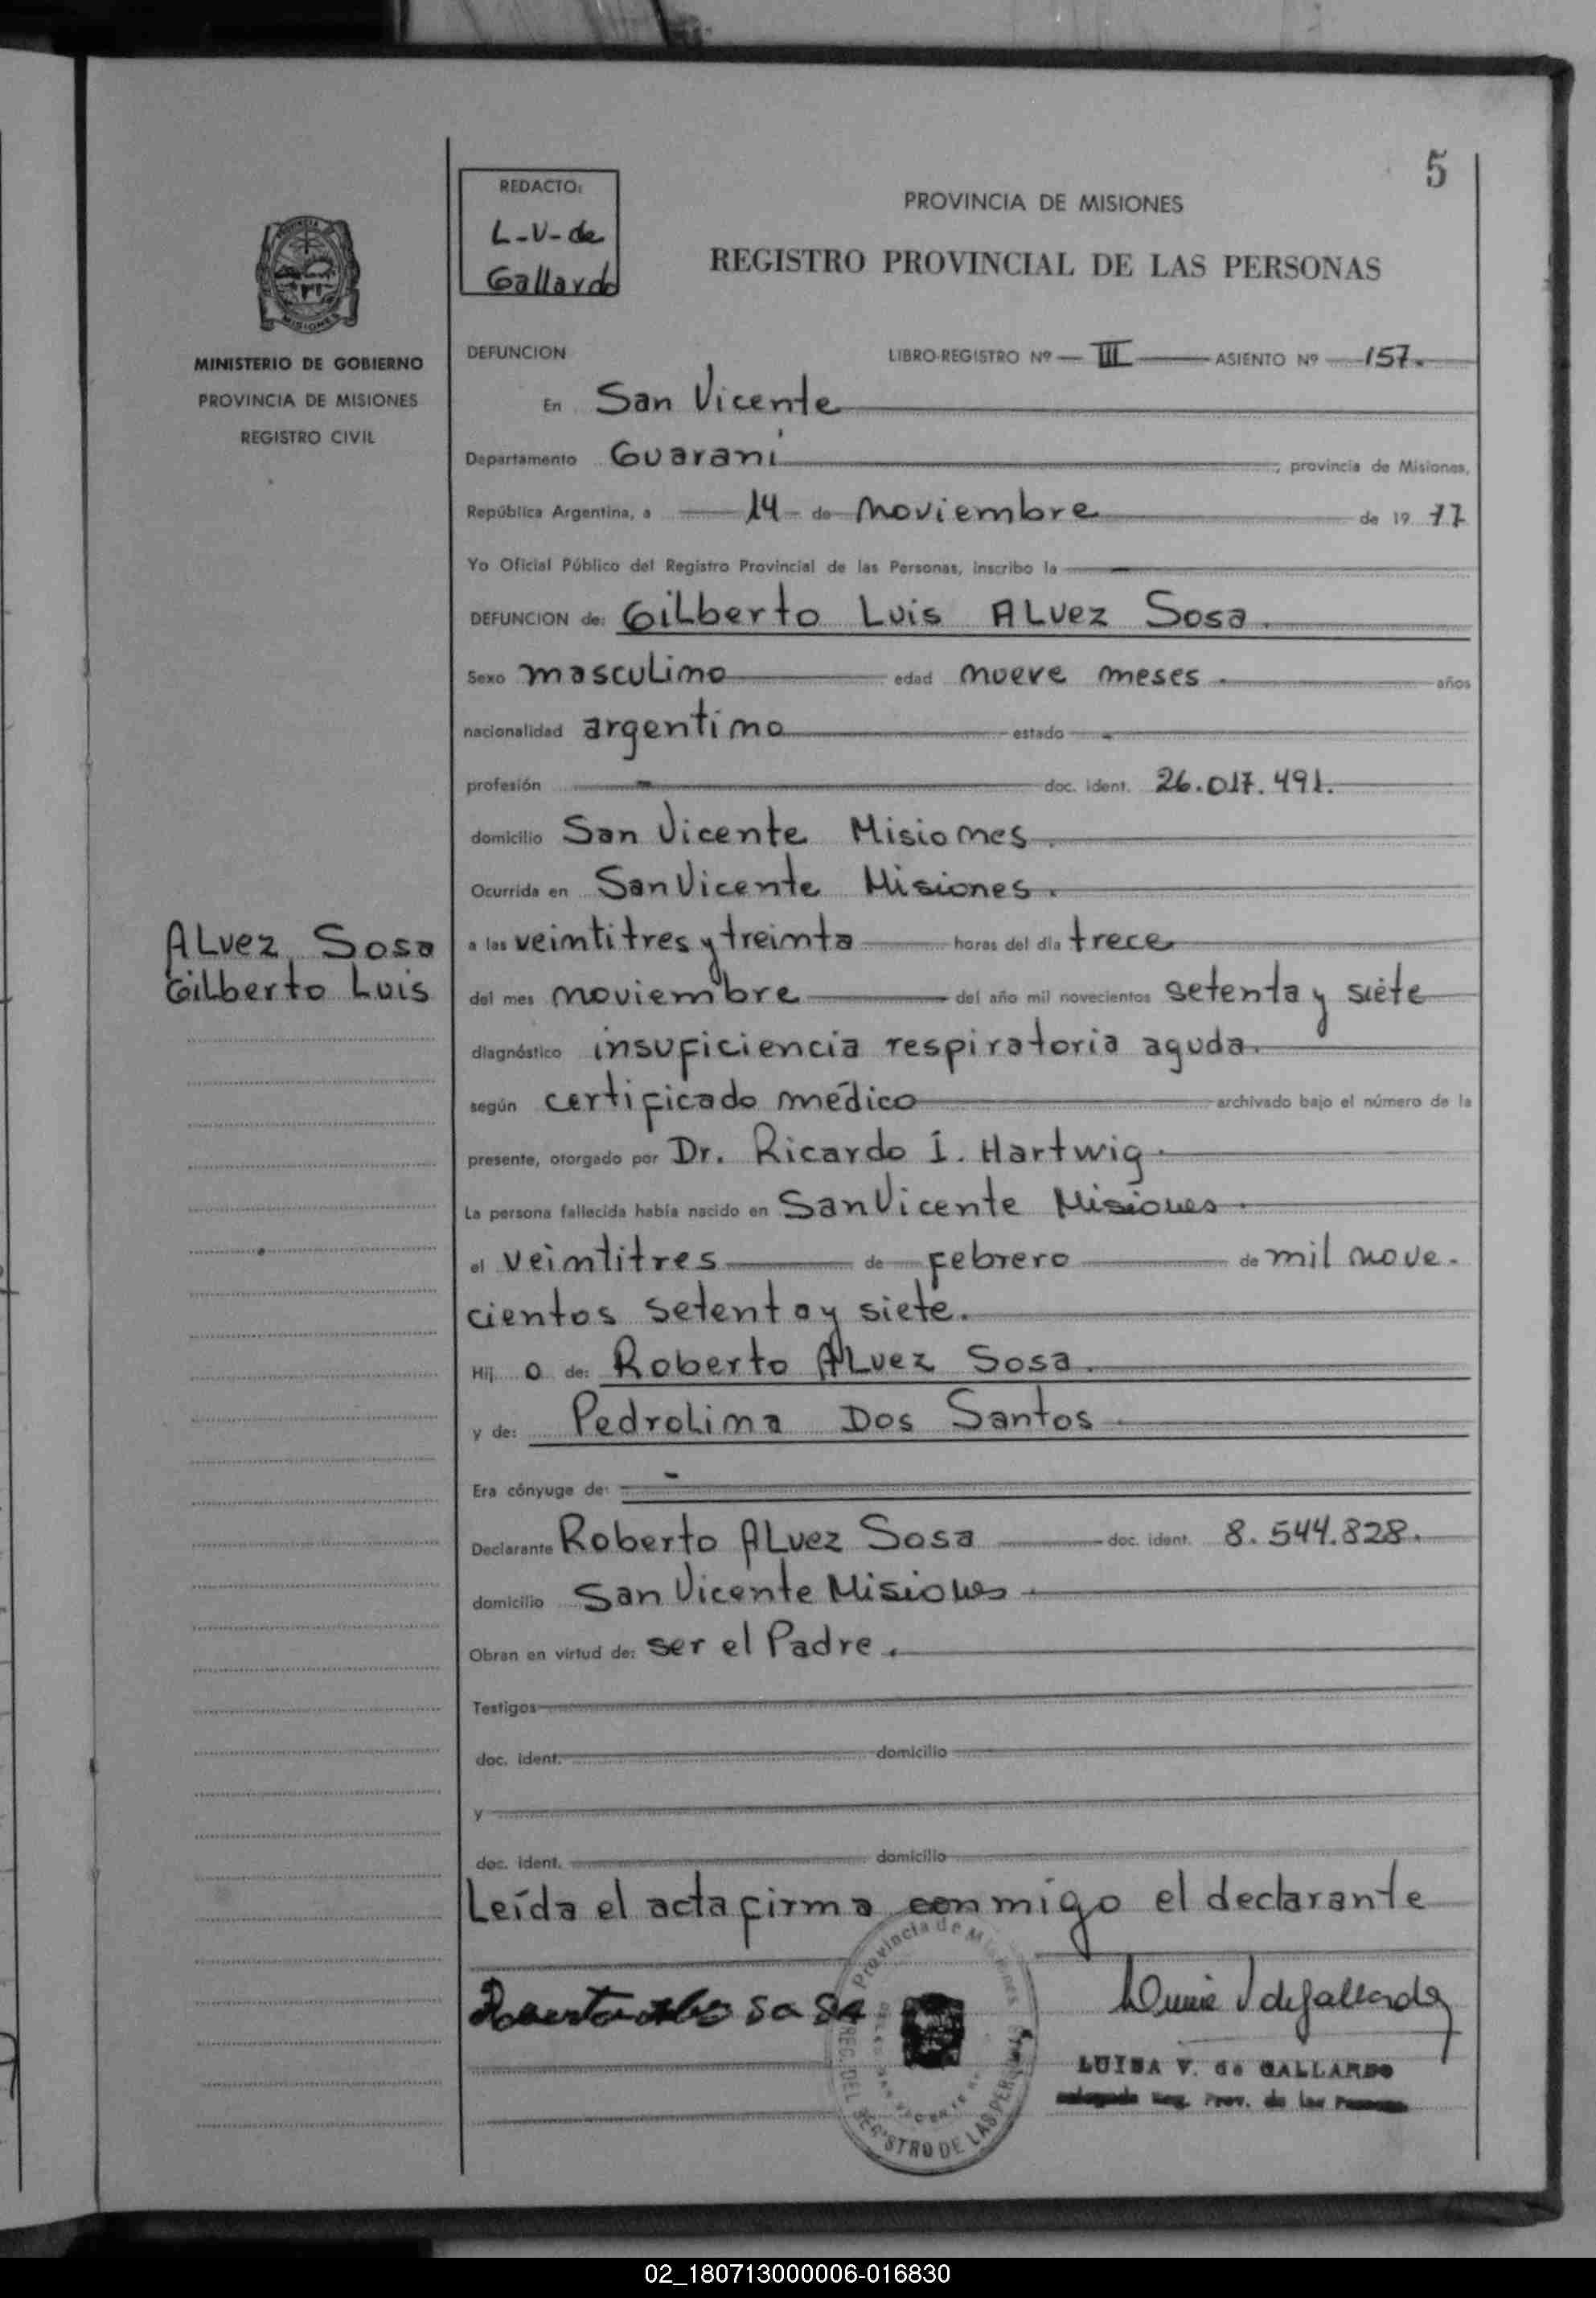 5
REDACTO:
L-V-de
Gallardo
PROVINCIA DE MISIONES
REGISTRO PROVINCIAL DE LAS PERSONAS
MISIONES
MINISTERIO DE GOBIERNO
PROVINCIA DE MISIONES
REGISTRO CIVIL
DEFUNCION LIBRO-REGISTRO Nº III ASIENTO Nº 157.
En San Vicente
Departamento Guaraní, provincia de Misiones,
República Argentina, a 14 de noviembre de 19 77
Yo Oficial Público del Registro Provincial de las Personas, inscribo la
DEFUNCION de: Gilberto Luis Alvez Sosa.
Sexo masculino edad nueve meses. años
nacionalidad argentino estado -
profesión - doc. ident. 26.017.491.
domicilio San Vicente Misiones.
Ocurrida en San Vicente Misiones.
Alvez Sosa
Gilberto Luis
a las veintitres y treinta horas del día trece
del mes noviembre del año mil novecientos setenta y siete
diagnóstico insuficiencia respiratoria aguda.
según certificado médico archivado bajo el número de la
presente, otorgado por Dr. Ricardo I. Hartwig.
La persona fallecida había nacido en San Vicente Misiones.
el veintitres de febrero de mil nove-
cientos setenta y siete.
Hij o de: Roberto Alvez Sosa.
y de: Pedrolina Dos Santos
Era cónyuge de: -
Declarante Roberto Alvez Sosa doc. ident. 8.544.828.
domicilio San Vicente Misiones
Obran en virtud de: ser el Padre.
Testigos
doc. ident. domicilio
y
doc. ident. domicilio
Leída el acta firma conmigo el declarante
Provincia de Misiones
REGISTRO DE LAS PERSONAS
LUISA V. de GALLARDO
Reg. Prov. de las Personas
02_180713000006-016830